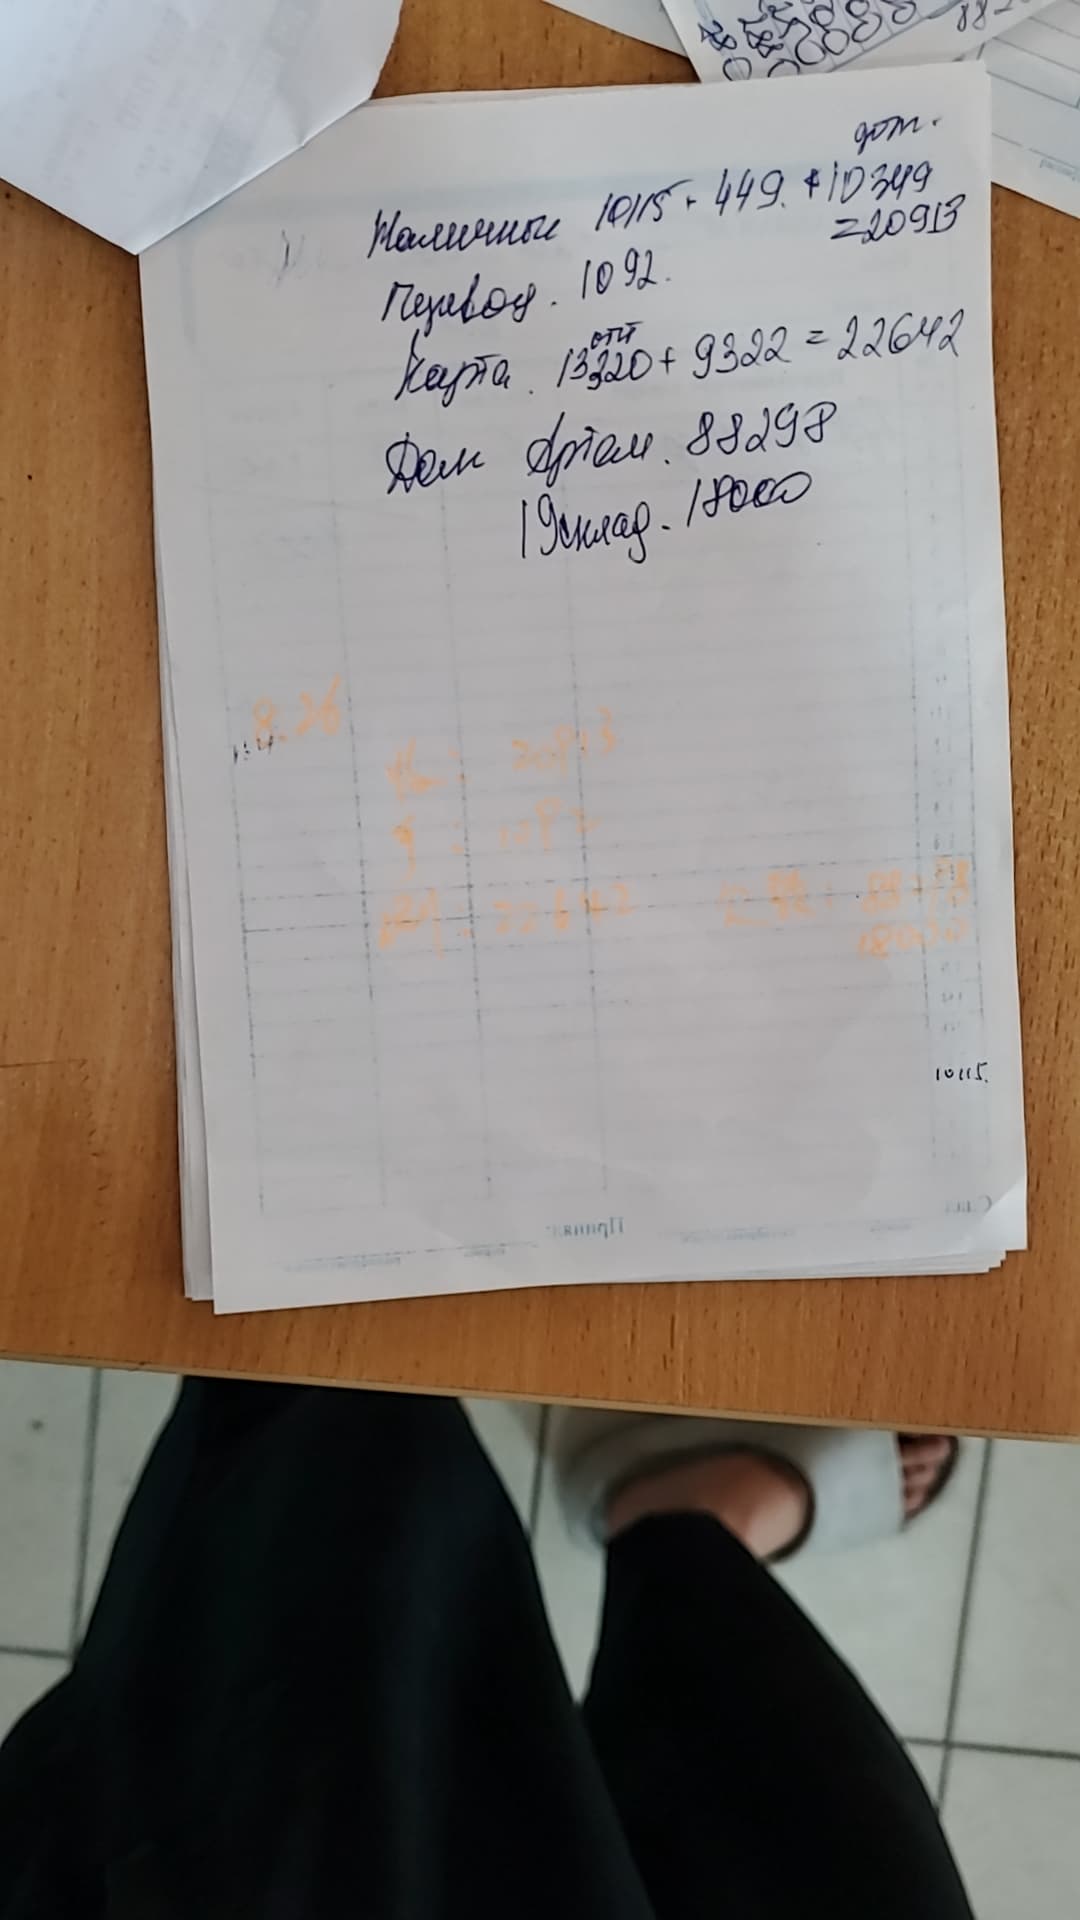 дот.
Наличные 10115 + 449. + 10349
=20913
Перевод. 1092.
опт
Карта. 13320 + 9322 = 22642
Долг Артем. 88298
19склад. 18000
8.26
: 20913
: 1092
: 22642 欠账: 88298
18000
10115.